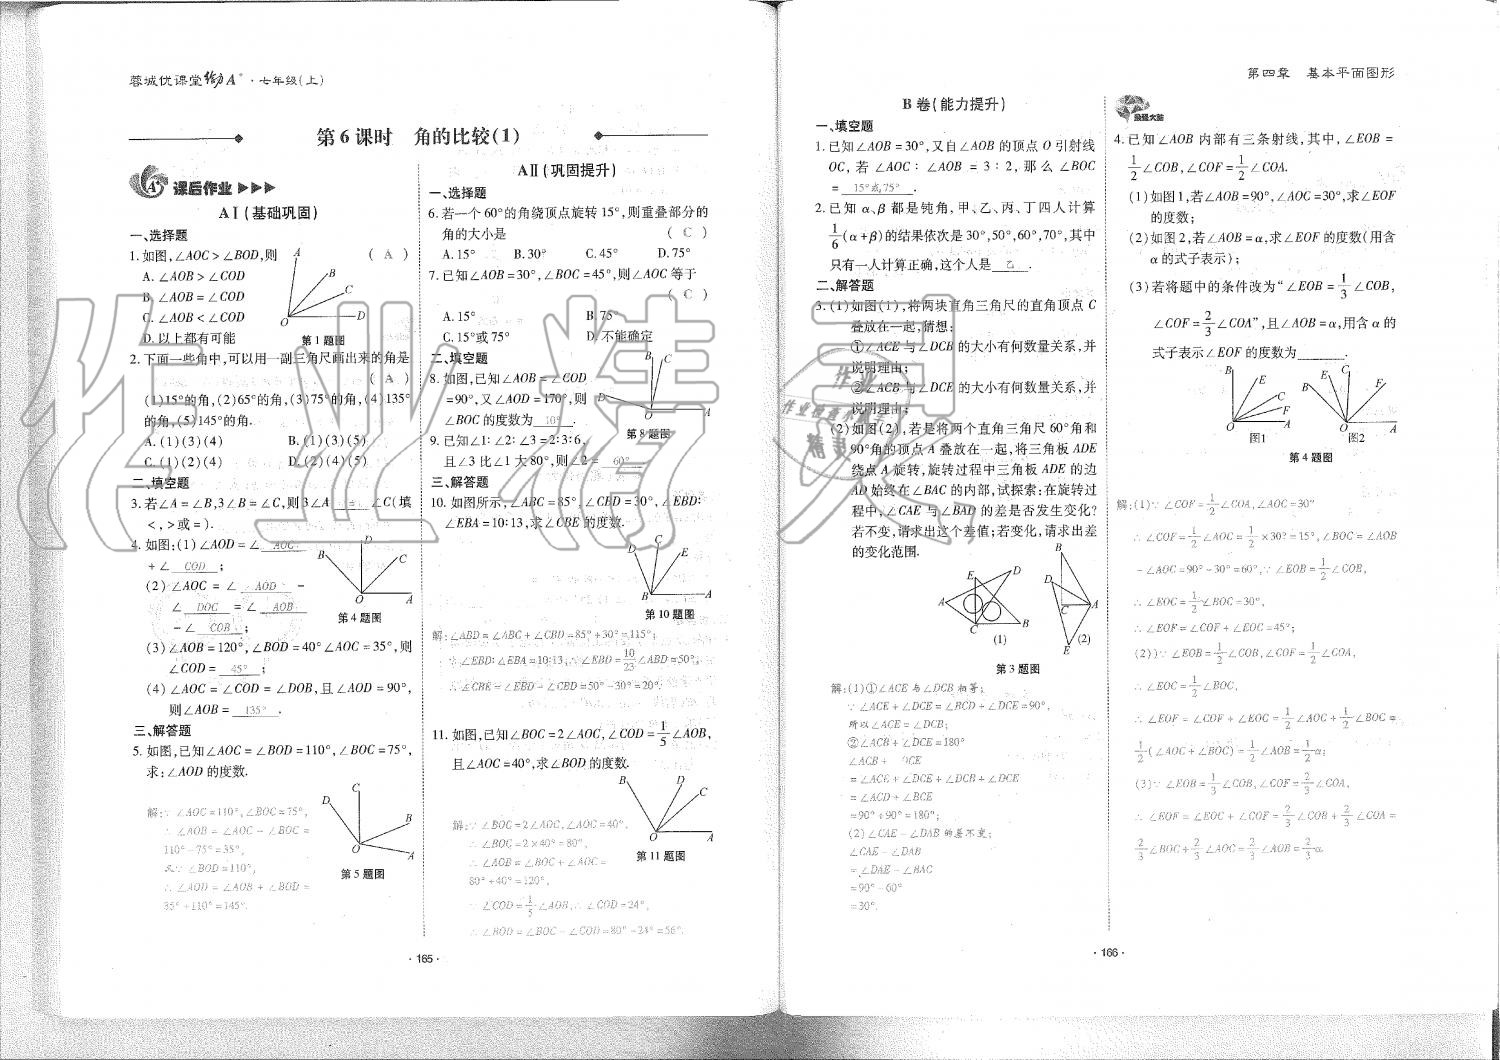 蓉城优课堂给力A⁺·七年级(上)
第6课时 角的比较(1)
课后作业
AⅠ(基础巩固)
一、选择题
1.如图,∠AOC>∠BOD,则 ( A )
A.∠AOB>∠COD
B.∠AOB=∠COD
C.∠AOB<∠COD
D.以上都有可能
第1题图
2.下面一些角中,可以用一副三角尺画出来的角是
( A )
(1)15°的角,(2)65°的角,(3)75°的角,(4)135°
的角,(5)145°的角.
A.(1)(3)(4) B.(1)(3)(5)
C.(1)(2)(4) D.(2)(4)(5)
二、填空题
3.若∠A=∠B,3∠B=∠C,则3∠A = ∠C(填
<,>或=).
4.如图:(1)∠AOD=∠ AOC
+∠ COD ;
(2)∠AOC=∠ AOD -
∠ DOC =∠ AOB
-∠ COB ;
第4题图
(3)∠AOB=120°,∠BOD=40°∠AOC=35°,则
∠COD= 45° ;
(4)∠AOC=∠COD=∠DOB,且∠AOD=90°,
则∠AOB= 135° .
三、解答题
5.如图,已知∠AOC=∠BOD=110°,∠BOC=75°,
求:∠AOD的度数.
解:∵∠AOC=110°,∠BOC=75°,
∴∠AOB=∠AOC-∠BOC=
110°-75°=35°,
又∵∠BOD=110°,
∴∠AOD=∠AOB+∠BOD=
35°+110°=145°.
第5题图
AⅡ(巩固提升)
一、选择题
6.若一个60°的角绕顶点旋转15°,则重叠部分的
角的大小是 ( C )
A.15° B.30° C.45° D.75°
7.已知∠AOB=30°,∠BOC=45°,则∠AOC等于
( C )
A.15° B.75°
C.15°或75° D.不能确定
二、填空题
8.如图,已知∠AOB=∠COD
=90°,又∠AOD=170°,则
∠BOC的度数为 10° .
第8题图
9.已知∠1∶∠2∶∠3=2∶3∶6,
且∠3比∠1大80°,则∠2= 60° .
三、解答题
10.如图所示,∠ABC=85°,∠CBD=30°,∠EBD∶
∠EBA=10∶13,求∠CBE的度数.
第10题图
解:∠ABD=∠ABC+∠CBD=85°+30°=115°;
∵∠EBD∶∠EBA=10∶13,∴∠EBD=10/23∠ABD=50°;
∴∠CBE=∠EBD-∠CBD=50°-30°=20°.
11.如图,已知∠BOC=2∠AOC,∠COD=1/5∠AOB,
且∠AOC=40°,求∠BOD的度数.
解:∵∠BOC=2∠AOC,∠AOC=40°,
∴∠BOC=2×40°=80°,
∴∠AOB=∠BOC+∠AOC=
80°+40°=120°,
∵∠COD=1/5∠AOB,∴∠COD=24°,
∴∠BOD=∠BOC-∠COD=80°-24°=56°.
第11题图
·165·
第四章 基本平面图形
B卷(能力提升)
一、填空题
1.已知∠AOB=30°,又自∠AOB的顶点O引射线
OC,若∠AOC∶∠AOB=3∶2,那么∠BOC
= 15°或75° .
2.已知α、β都是钝角,甲、乙、丙、丁四人计算
1/6(α+β)的结果依次是30°,50°,60°,70°,其中
只有一人计算正确,这个人是 乙 .
二、解答题
3.(1)如图(1),将两块直角三角尺的直角顶点C
叠放在一起,猜想:
①∠ACE与∠DCB的大小有何数量关系,并
说明理由;
②∠ACB与∠DCE的大小有何数量关系,并
说明理由;
(2)如图(2),若是将两个直角三角尺60°角和
90°角的顶点A叠放在一起,将三角板ADE
绕点A旋转,旋转过程中三角板ADE的边
AD始终在∠BAC的内部,试探索:在旋转过
程中,∠CAE与∠BAD的差是否发生变化?
若不变,请求出这个差值;若变化,请求出差
的变化范围.
(1) (2)
第3题图
解:(1)①∠ACE与∠DCB相等;
∵∠ACE+∠DCE=∠BCD+∠DCE=90°,
所以∠ACE=∠DCB;
②∠ACB+∠DCE=180°
∠ACB+ DCE
=∠ACE+∠DCE+∠DCB+∠DCE
=∠ACD+∠BCE
=90°+90°=180°;
(2)∠CAE-∠DAB的差不变;
∠CAE-∠DAB
=∠DAE-∠BAC
=90°-60°
=30°.
最强大脑
4.已知∠AOB内部有三条射线,其中,∠EOB=
1/2∠COB,∠COF=1/2∠COA.
(1)如图1,若∠AOB=90°,∠AOC=30°,求∠EOF
的度数;
(2)如图2,若∠AOB=α,求∠EOF的度数(用含
α的式子表示);
(3)若将题中的条件改为“∠EOB=1/3∠COB,
∠COF=2/3∠COA”,且∠AOB=α,用含α的
式子表示∠EOF的度数为 .
图1 图2
第4题图
解:(1)∵∠COF=1/2∠COA,∠AOC=30°
∴∠COF=1/2∠AOC=1/2×30°=15°,∠BOC=∠AOB
-∠AOC=90°-30°=60°,∵∠EOB=1/2∠COB,
∴∠EOC=1/2∠BOC=30°,
∴∠EOF=∠COF+∠EOC=45°;
(2)∵∠EOB=1/2∠COB,∠COF=1/2∠COA,
∴∠EOC=1/2∠BOC,
∴∠EOF=∠COF+∠EOC=1/2∠AOC+1/2∠BOC=
1/2(∠AOC+∠BOC)=1/2∠AOB=1/2α;
(3)∵∠EOB=1/3∠COB,∠COF=2/3∠COA,
∴∠EOF=∠EOC+∠COF=2/3∠COB+2/3∠COA=
2/3∠BOC+2/3∠AOC=2/3∠AOB=2/3α.
·166·
作业精灵